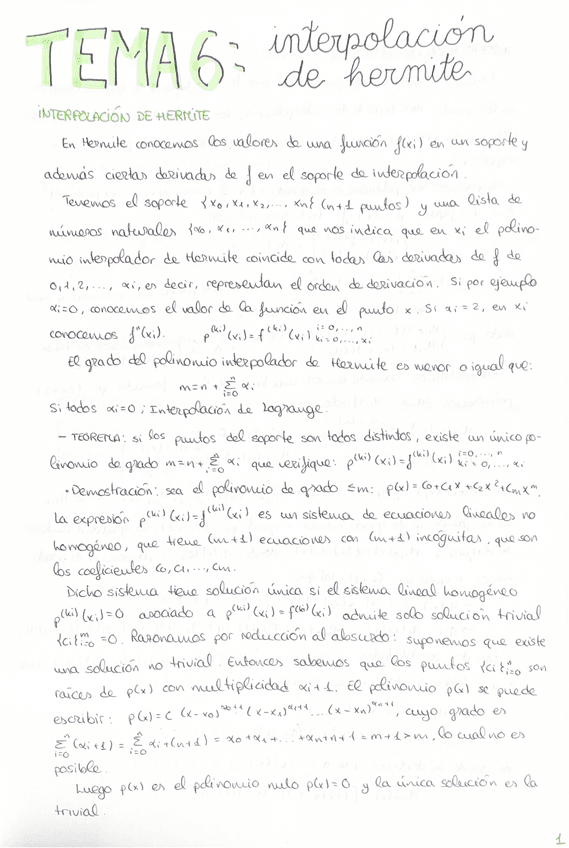 TEMA 6: interpolación
de hermite
INTERPOLACIÓN DE HERMITE
En Hermite conocemos los valores de una función f(xi) en un soporte y
además ciertas derivadas de f en el soporte de interpolación.
Tenemos el soporte {x₀, x₁, x₂, ..., xn} (n+1 puntos) y una lista de
números naturales {α₀, α₁, ..., αn} que nos indica que en xi el polino-
mio interpolador de Hermite coincide con todas las derivadas de f de
0, 1, 2, ..., αi, es decir, representan el orden de derivación. Si por ejemplo
αi=0, conocemos el valor de la función en el punto x. Si αi=2, en xi
conocemos f''(xi). p^(ki)(xi)=f^(ki)(xi) i=0,...,n ki=0,...,αi
El grado del polinomio interpolador de Hermite es menor o igual que:
m=n+∑_{i=0}^n αi
Si todos αi=0; Interpolación de Lagrange.
- TEOREMA: si los puntos del soporte son todos distintos, existe un único po-
linomio de grado m=n+∑_{i=0}^n αi que verifique: p^(ki)(xi)=f^(ki)(xi) i=0,...,n ki=0,...,αi
• Demostración: sea el polinomio de grado ≤m: p(x)=c₀+c₁x+c₂x²+cmx^m.
La expresión p^(ki)(xi)=f^(ki)(xi) es un sistema de ecuaciones lineales no
homogéneo, que tiene (m+1) ecuaciones con (m+1) incógnitas, que son
los coeficientes c₀, c₁, ..., cm.
Dicho sistema tiene solución única si el sistema lineal homogéneo
p^(ki)(xi)=0 asociado a p^(ki)(xi)=f^(ki)(xi) admite solo solución trivial
{ci}_{i=0}^m=0. Razonamos por reducción al absurdo: suponemos que existe
una solución no trivial. Entonces sabemos que los puntos {ci}_{i=0}^n son
raíces de p(x) con multiplicidad αi+1. El polinomio p(x) se puede
escribir: p(x)=C (x-x₀)^{α₀+1} (x-x₁)^{α₁+1} ... (x-xn)^{αn+1}, cuyo grado es
∑_{i=0}^n (αi+1) = ∑_{i=0}^n αi+(n+1) = α₀+α₁+...+αn+n+1=m+1>m, lo cual no es
posible.
Luego p(x) es el polinomio nulo p(x)=0 y la única solución es la
trivial.
1